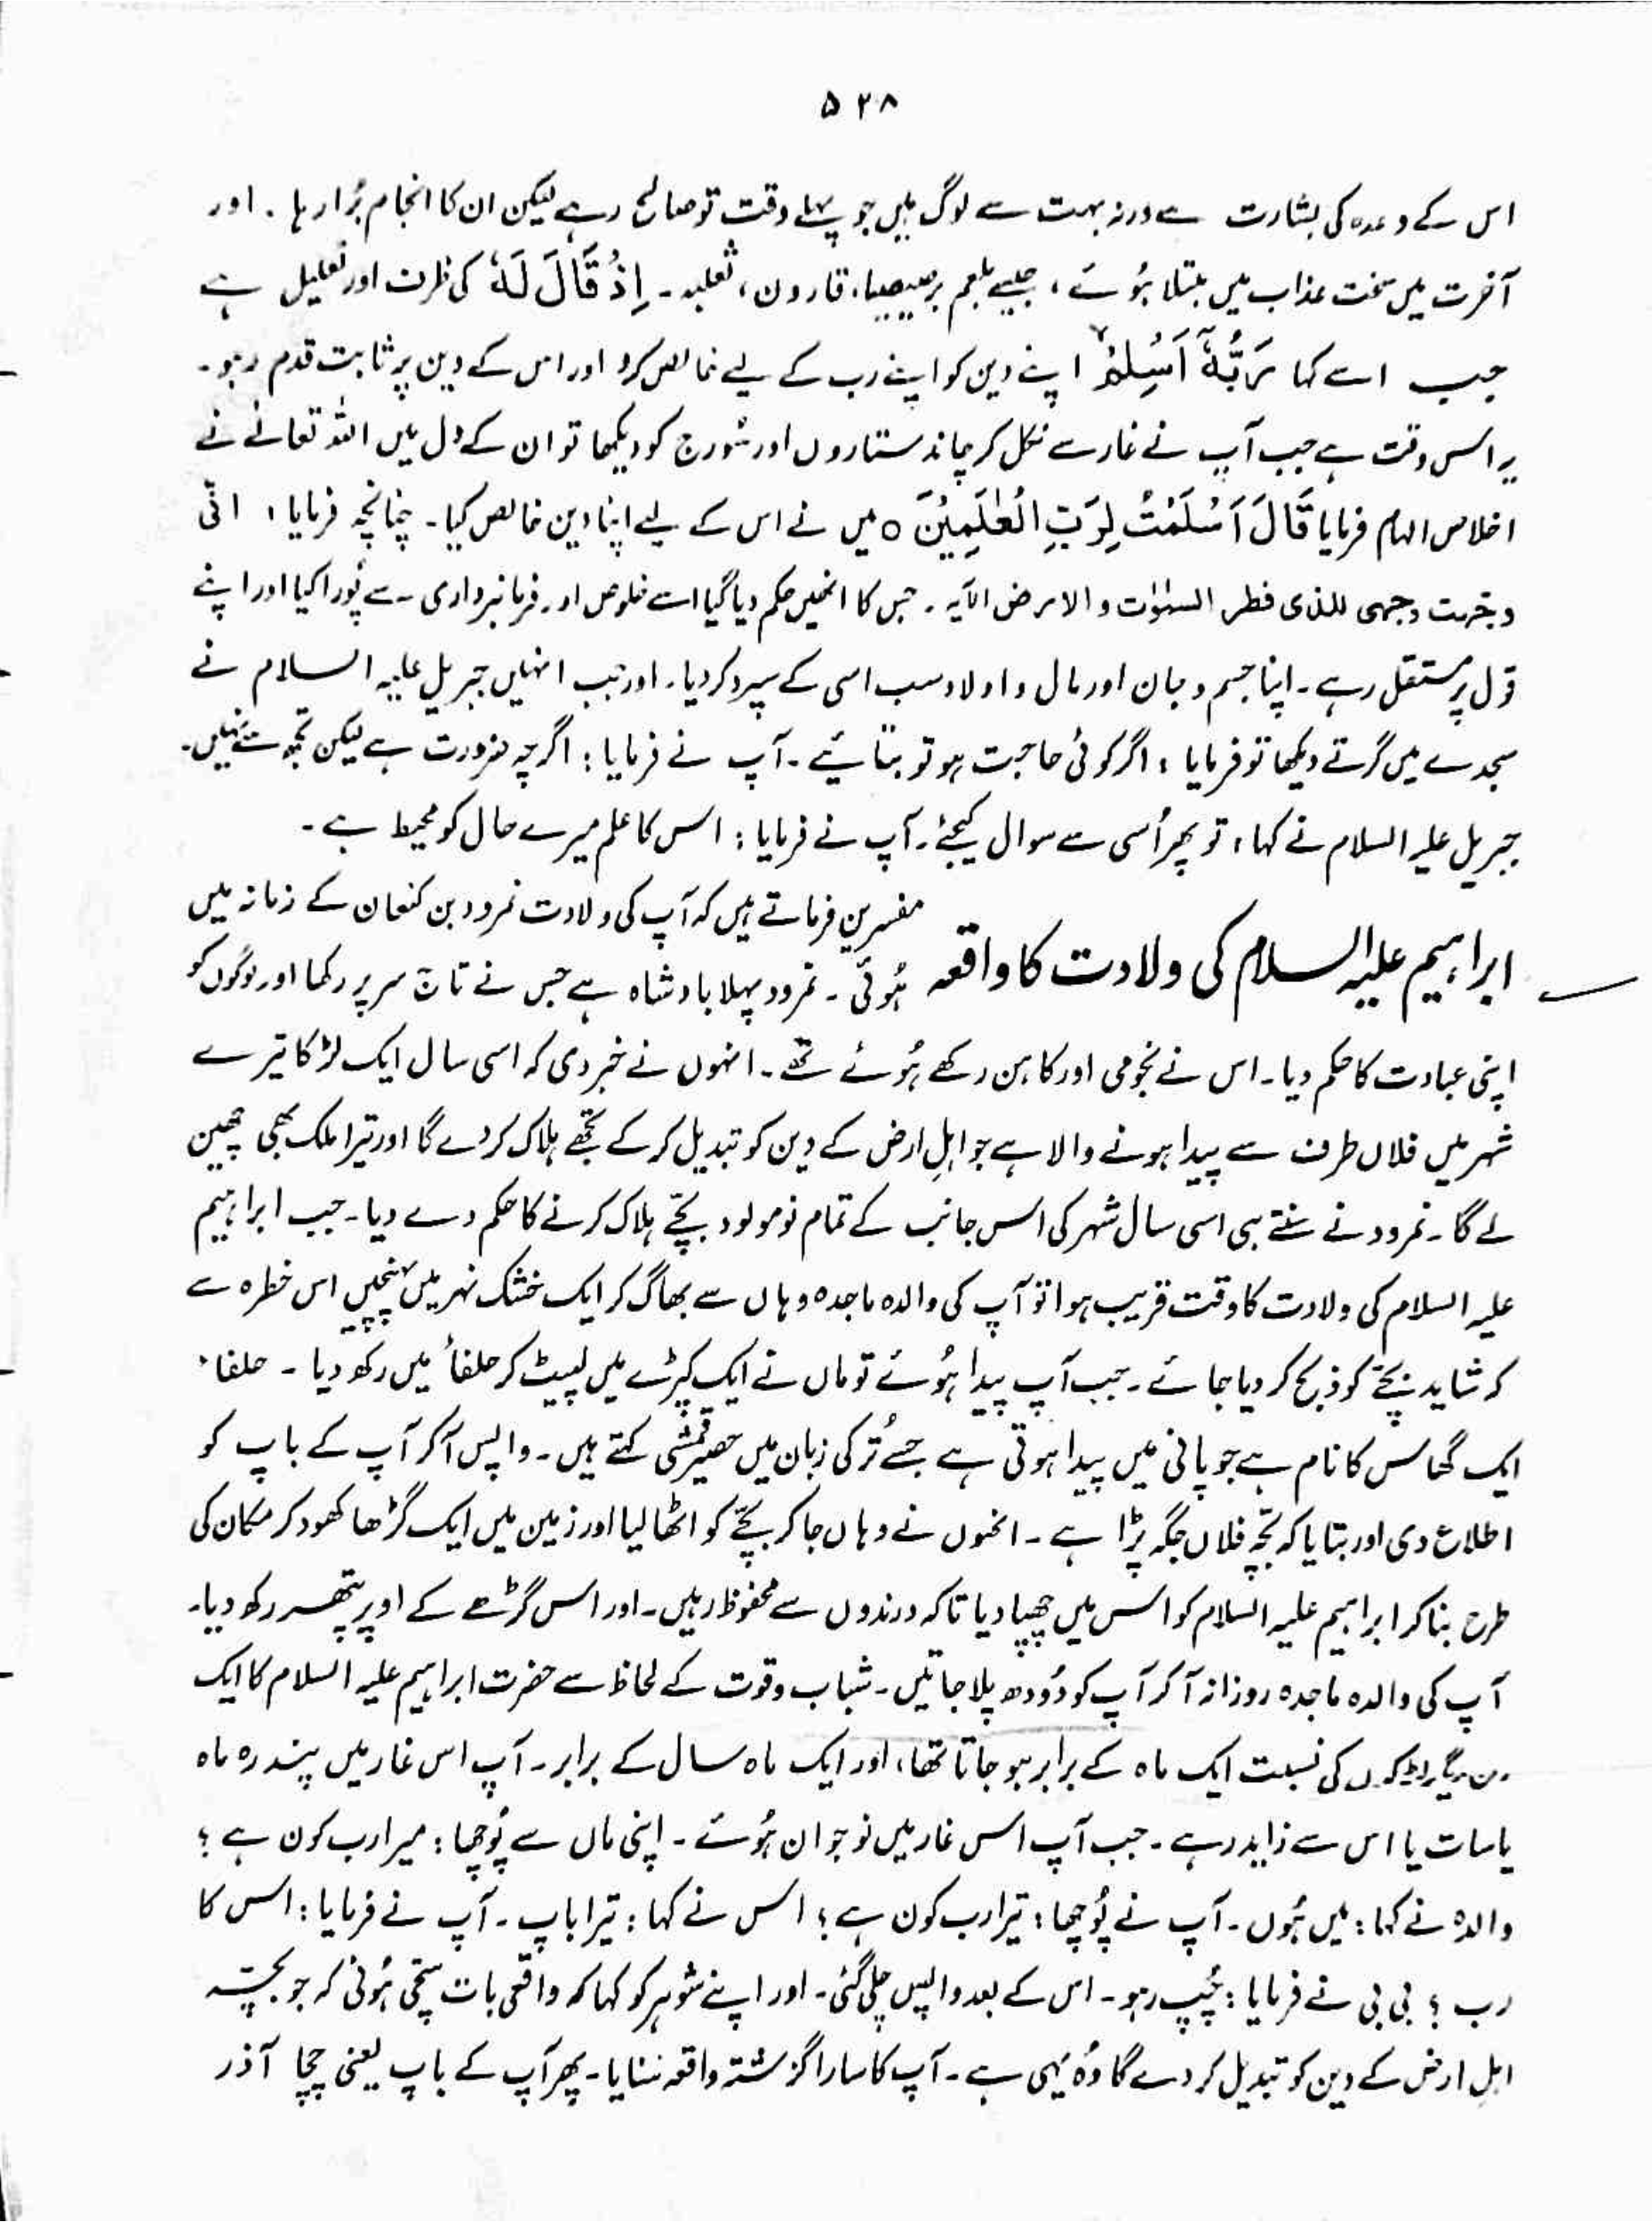 ۵۲۸
اس کے وعدہ کی بشارت ہے ورنہ بہت سے لوگ ہیں جو پہلے وقت تو صالح رہے لیکن ان کا انجام بُرا رہا ۔ اور
آخرت میں سخت عذاب میں مبتلا ہُوئے ، جیسے بلعم برصیصیا، قارون ، ثعلبہ ۔ اِذْ قَالَ لَہٗ کی ظرف اور تعلیل ہے
جب اسے کہا رَبُّہٗٓ اَسْلِمْ اپنے دین کو اپنے رب کے لیے خالص کرو اور اس کے دین پر ثابت قدم رہو ۔
یہ اس وقت ہے جب آپ نے غار سے نکل کر چاند ستاروں اور سُورج کو دیکھا تو ان کے دل میں اللہ تعالےٰ نے
اخلاص الہام فرمایا قَالَ اَسْلَمْتُ لِرَبِّ الْعٰلَمِیْنَ ○ میں نے اس کے لیے اپنا دین خالص کیا ۔ چنانچہ فرمایا ؛ انّی
وجّہت وجہی للذی فطر السمٰوٰت والارض الآیہ ۔ جس کا انھیں حکم دیا گیا اسے خلوص اور فرمانبرداری سے پُورا کیا اور اپنے
قول پر مستقل رہے ۔ اپنا جسم و جان اور مال و اولاد سب اسی کے سپرد کر دیا ۔ اور جب انہیں جبریل علیہ السلام نے
سجدے میں گرتے دیکھا تو فرمایا ؛ اگر کوئی حاجت ہو تو بتائیے ۔ آپ نے فرمایا : اگرچہ ضرورت ہے لیکن تجھ سے نہیں ۔
جبریل علیہ السلام نے کہا ؛ تو پھر اُسی سے سوال کیجئے ۔ آپ نے فرمایا : اس کا علم میرے حال کو محیط ہے ۔
ابراہیم علیہ السلام کی ولادت کا واقعہ
مفسرین فرماتے ہیں کہ آپ کی ولادت نمرود بن کنعان کے زمانہ میں
ہُوئی ۔ نمرود پہلا بادشاہ ہے جس نے تاج سر پر رکھا اور لوگوں کو
اپنی عبادت کا حکم دیا ۔ اس نے نجومی اور کاہن رکھے ہُوئے تھے ۔ انہوں نے خبر دی کہ اسی سال ایک لڑکا تیرے
شہر میں فلاں طرف سے پیدا ہونے والا ہے جو اہلِ ارض کے دین کو تبدیل کر کے تجھے ہلاک کر دے گا اور تیرا ملک بھی چھین
لے گا ۔ نمرود نے سُنتے ہی اسی سال شہر کی اس جانب کے تمام نومولود بچّے ہلاک کرنے کا حکم دے دیا ۔ جب ابراہیم
علیہ السلام کی ولادت کا وقت قریب ہوا تو آپ کی والدہ ماجدہ وہاں سے بھاگ کر ایک خشک نہر میں پہنچیں اس خطرہ سے
کہ شاید بچّے کو ذبح کر دیا جائے ۔ جب آپ پیدا ہُوئے تو ماں نے ایک کپڑے میں لپیٹ کر حلفأ میں رکھ دیا ۔ حلفاء
ایک گھاس کا نام ہے جو پانی میں پیدا ہوتی ہے جسے تُرکی زبان میں کہتے ہیں ۔ واپس آکر آپ کے باپ کو
اطلاع دی اور بتایا کہ بچّہ فلاں جگہ پڑا ہے ۔ انھوں نے وہاں جا کر بچّے کو اٹھا لیا اور زمین میں ایک گڑھا کھود کر مکان کی
طرح بنا کر ابراہیم علیہ السلام کو اس میں چھپا دیا تاکہ درندوں سے محفوظ رہیں ۔ اور اس گڑھے کے اوپر پتھر رکھ دیا ۔
آپ کی والدہ ماجدہ روزانہ آکر آپ کو دُودھ پلا جاتیں ۔ شباب و قوت کے لحاظ سے حضرت ابراہیم علیہ السلام کا ایک
دن دیگر لڑکوں کی نسبت ایک ماہ کے برابر ہو جاتا تھا ، اور ایک ماہ سال کے برابر ۔ آپ اس غار میں پندرہ ماہ
یا سات یا اس سے زاید رہے ۔ جب آپ اس غار میں نوجوان ہُوئے ۔ اپنی ماں سے پُوچھا : میرا رب کون ہے ؟
والدہ نے کہا : میں ہُوں ۔ آپ نے پُوچھا : تیرا رب کون ہے ؟ اس نے کہا : تیرا باپ ۔ آپ نے فرمایا : اس کا
رب ؟ بی بی نے فرمایا : چُپ رہو ۔ اس کے بعد واپس چلی گئی ۔ اور اپنے شوہر کو کہا کہ واقعی بات سچّی ہُوئی کہ جو بچّہ
اہلِ ارض کے دین کو تبدیل کر دے گا وُہ یہی ہے ۔ آپ کا سارا گزشتہ واقعہ سُنایا ۔ پھر آپ کے باپ یعنی چچا آذر